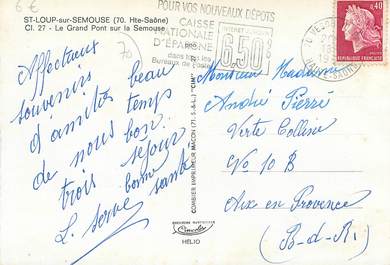 6 €
ST-LOUP-sur-SEMOUSE (70. Hte-Saône)
Cl. 27 - Le Grand Pont sur la Semouse
70
POUR VOS NOUVEAUX DÉPOTS
CAISSE
NATIONALE
D'ÉPARGNE
dans tous les
Bureaux de poste
6,50%
0,40
REPUBLIQUE FRANÇAISE
Affectueux
souvenirs beau
d'amitiés temps
de nous bon
trois séjour
bonne santé
L. Serve
COMBIER IMPRIMEUR MACON (71. S.-&-L.) "CIM"
Combier
HELIO
Monsieur Madame
André Pierré
Verte Colline
No 10 B
Aix en Provence
(B-d-R)